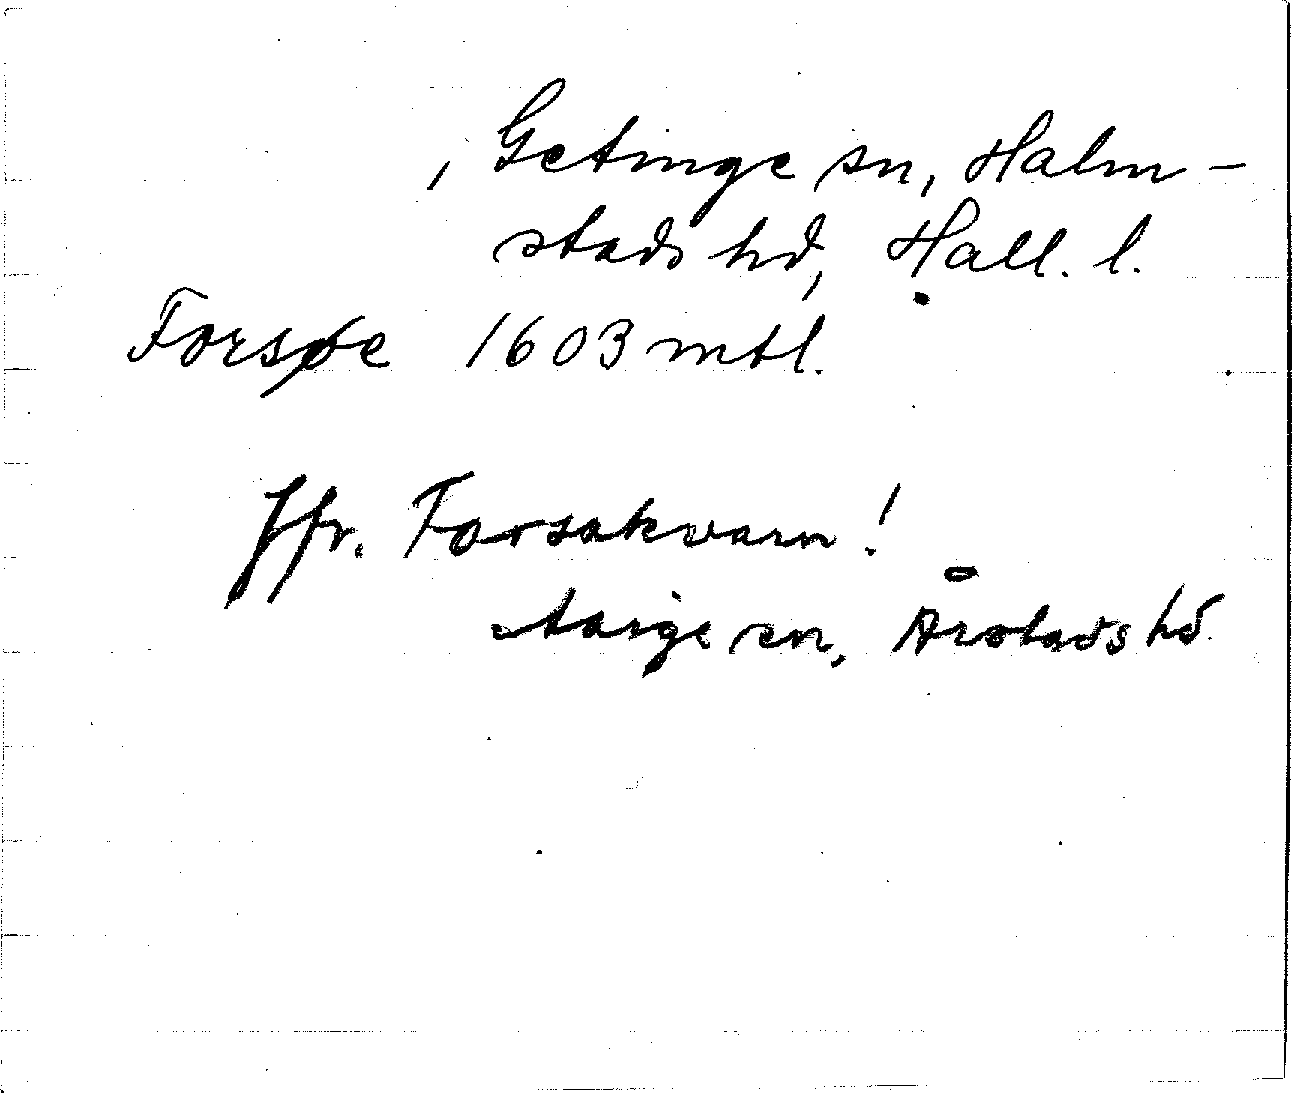 , Getinge sn, Halm-
stads hd, Hall. l.
Forsøe 1603 mtl.
Jfr. Forsakvarn!
Asige sn, Årstads hd.